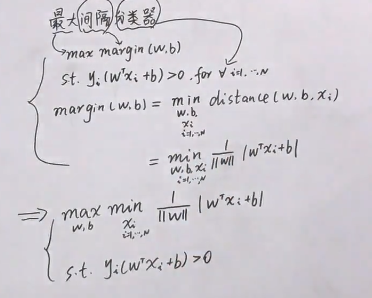 最大间隔分类器
max margin(w,b)
s.t. yᵢ(wᵀxᵢ+b)>0, for ∀ i=1,…,N
margin(w,b) = min distance(w,b,xᵢ)
w,b,
xᵢ
i=1,…,N
= min 1/‖w‖ |wᵀxᵢ+b|
w,b,xᵢ
i=1,…,N
⟹ max min 1/‖w‖ |wᵀxᵢ+b|
w,b xᵢ
i=1,…,N
s.t. yᵢ(wᵀxᵢ+b)>0